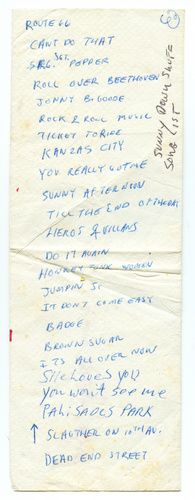 ROUTE 66
CANT DO THAT
SRG. SGT. PEPPER
ROLL OVER BEETHOVEN
JONNY B. GOODE
ROCK & ROLL MUSIC
TICKET TO RIDE
KANZAS CITY
YOU REALLY GOT ME
SUNNY AFTERNOON
TILL THE END OF THE DAY
HEROS & VILLANS
DO IT AGAIN
HONKEY TONK WOMEN
JUMPIN J
IT DONT COME EASY
BADGE
BROWN SUGAR
ITS ALL OVER NOW
She Loves You
You wont see me
PALISADES PARK
SLAUTHER ON 10TH AV.
DEAD END STREET
SUNNY DOWN SNUFF
SONG LIST